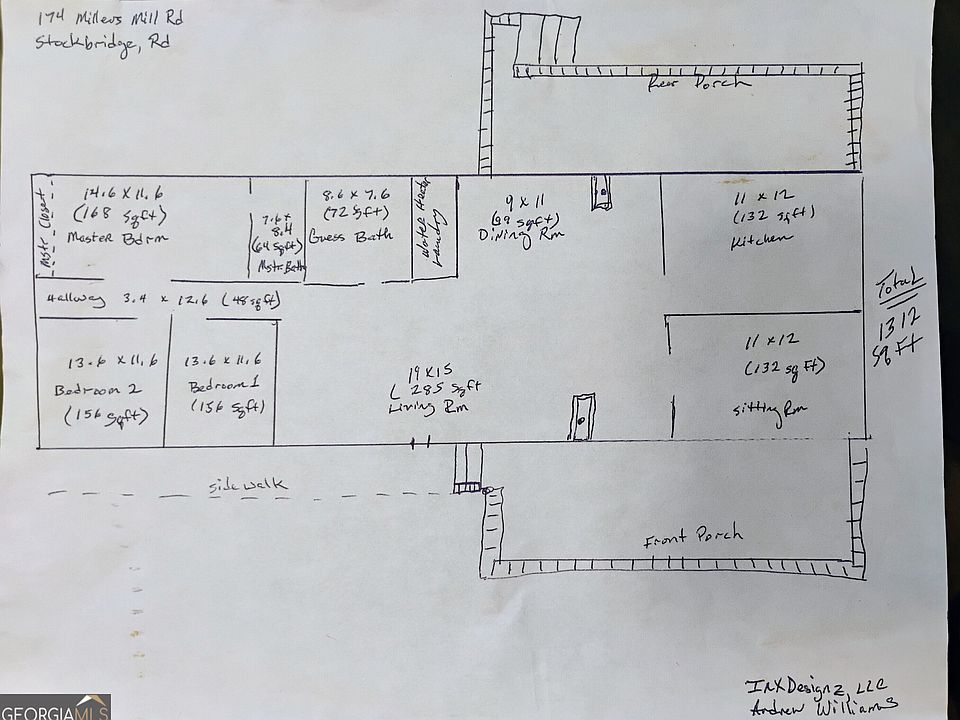 174 Millers Mill Rd
Stockbridge, Rd
Rear Porch
Mstr. Closet
14.6 x 11.6
(168 Sqft)
Master Bdrm
7.6 x
8.4
(64 sqft)
Mstr. Bath
8.6 x 7.6
(72 Sqft)
Guess Bath
Water Heater
Laundry
9 x 11
(99 sqft)
Dining Rm
11 x 12
(132 sqft)
Kitchen
Hallway 3.4 x 12.6 (48 sqft)
Total
1312
Sq Ft
13.6 x 11.6
Bedroom 2
(156 sqft)
13.6 x 11.6
Bedroom 1
(156 sqft)
19 x 15
( 285 Sqft
Living Rm
11 x 12
(132 sq ft)
Sitting Rm
sidewalk
Front Porch
InXDesignz, LLC
Andrew Williams
GEORGIAMLS